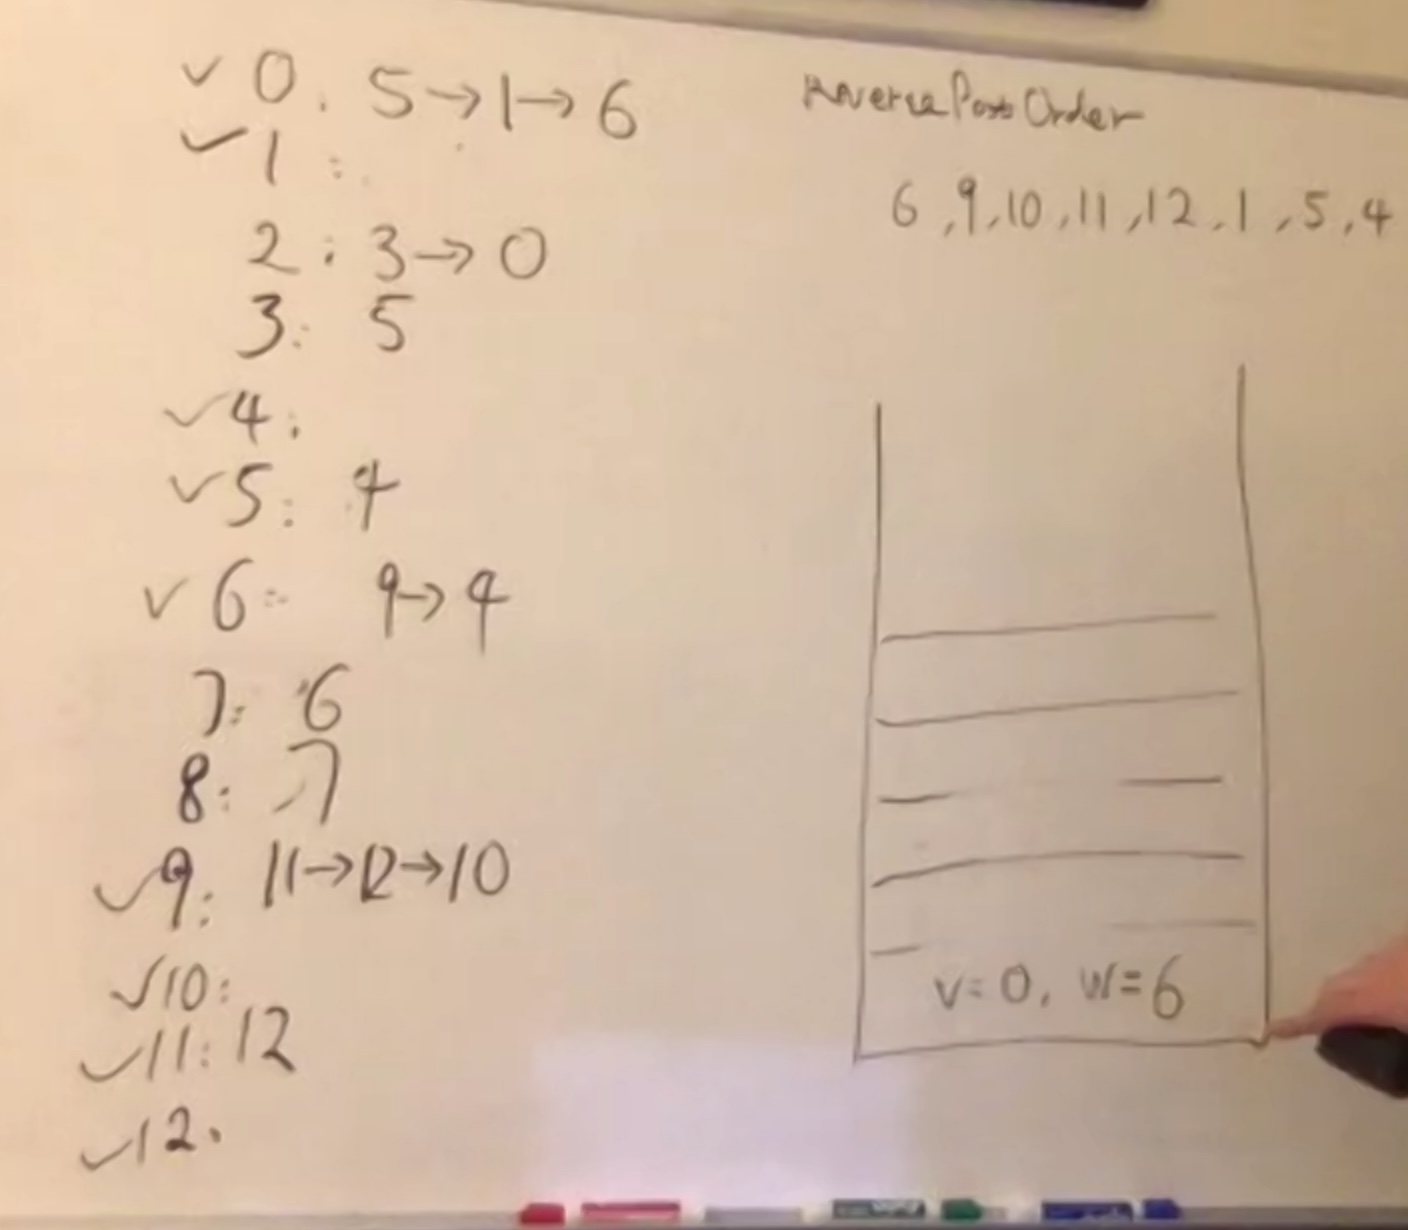 ✓ 0: 5→1→6
✓ 1:
2: 3→0
3: 5
✓ 4:
✓ 5: 4
✓ 6: 9→4
7: 6
8: 7
✓ 9: 11→12→10
✓ 10:
✓ 11: 12
✓ 12.
Reverse Post Order
6, 9, 10, 11, 12, 1, 5, 4
v=0, w=6